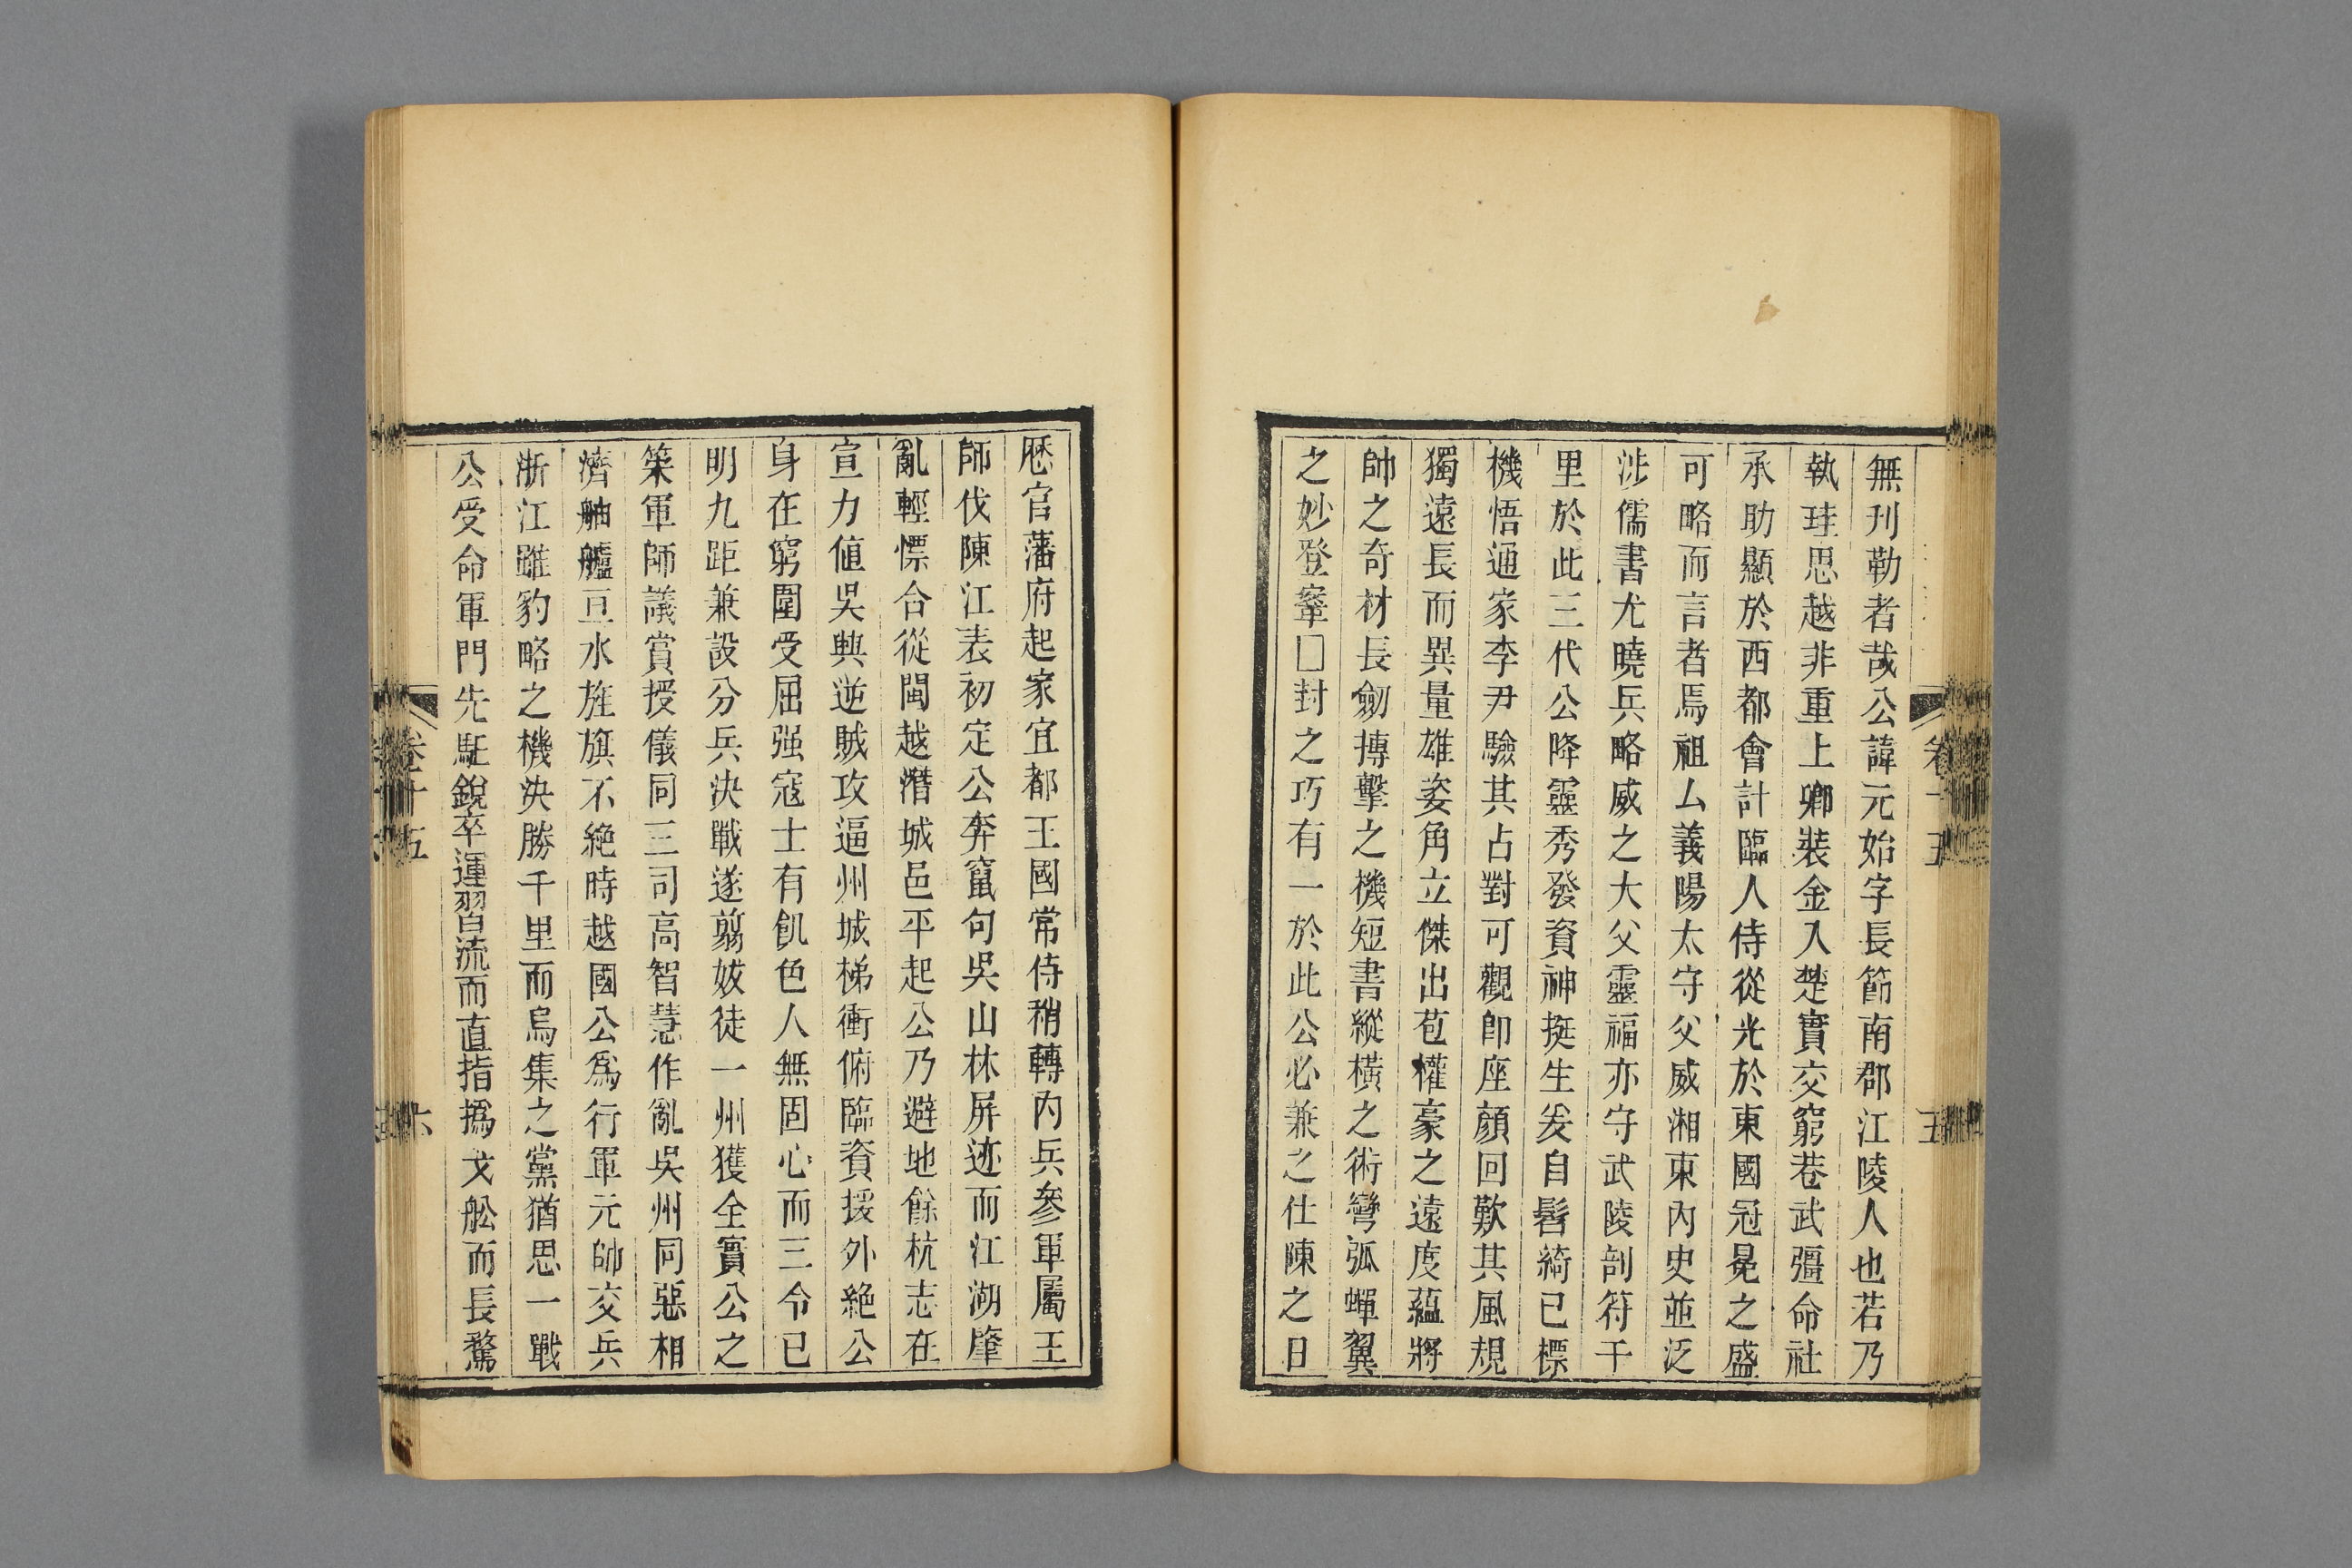 無刊勒者哉公諱元始字長節南郡江陵人也若乃
執珪思越非重上卿裝金入楚實交窮巷武彊命社
承助顯於西都會計臨人侍從光於東國冠冕之盛
可略而言者焉祖厶義陽太守父威湘東內史並泛
涉儒書尤曉兵略威之大父靈福亦守武陵剖符千
里於此三代公降靈秀發資神挺生爰自髫綺已標
機悟通家李尹驗其占對可觀卽座顏回歎其風規
獨遠長而異量雄姿角立傑出苞權豪之遠度蘊將
帥之奇材長劒摶擊之機短書縱橫之術彎弧蟬翼
之妙登窂□封之巧有一於此公必兼之仕陳之日
卷十五
五
歷官藩府起家宜都王國常侍稍轉內兵參軍屬王
師伐陳江表初定公奔竄句吳山林屏迹而江湖肇
亂輕慓合從閩越潛城邑平起公乃避地餘杭志在
宣力値吳興逆賊攻逼州城梯衝俯臨資援外絶公
身在窮圍受屈强寇士有飢色人無固心而三令已
明九距兼設分兵決戰遂翦妭徒一州獲全實公之
築軍師議賞授儀同三司高智慧作亂吳州同惡相
濟舳艫亘水旌旗不絶時越國公爲行軍元帥交兵
浙江雖豹略之機決勝千里而烏集之黨猶思一戰
公受命軍門先駈銳卒運習流而直指撝戈舩而長騖
卷十五
六